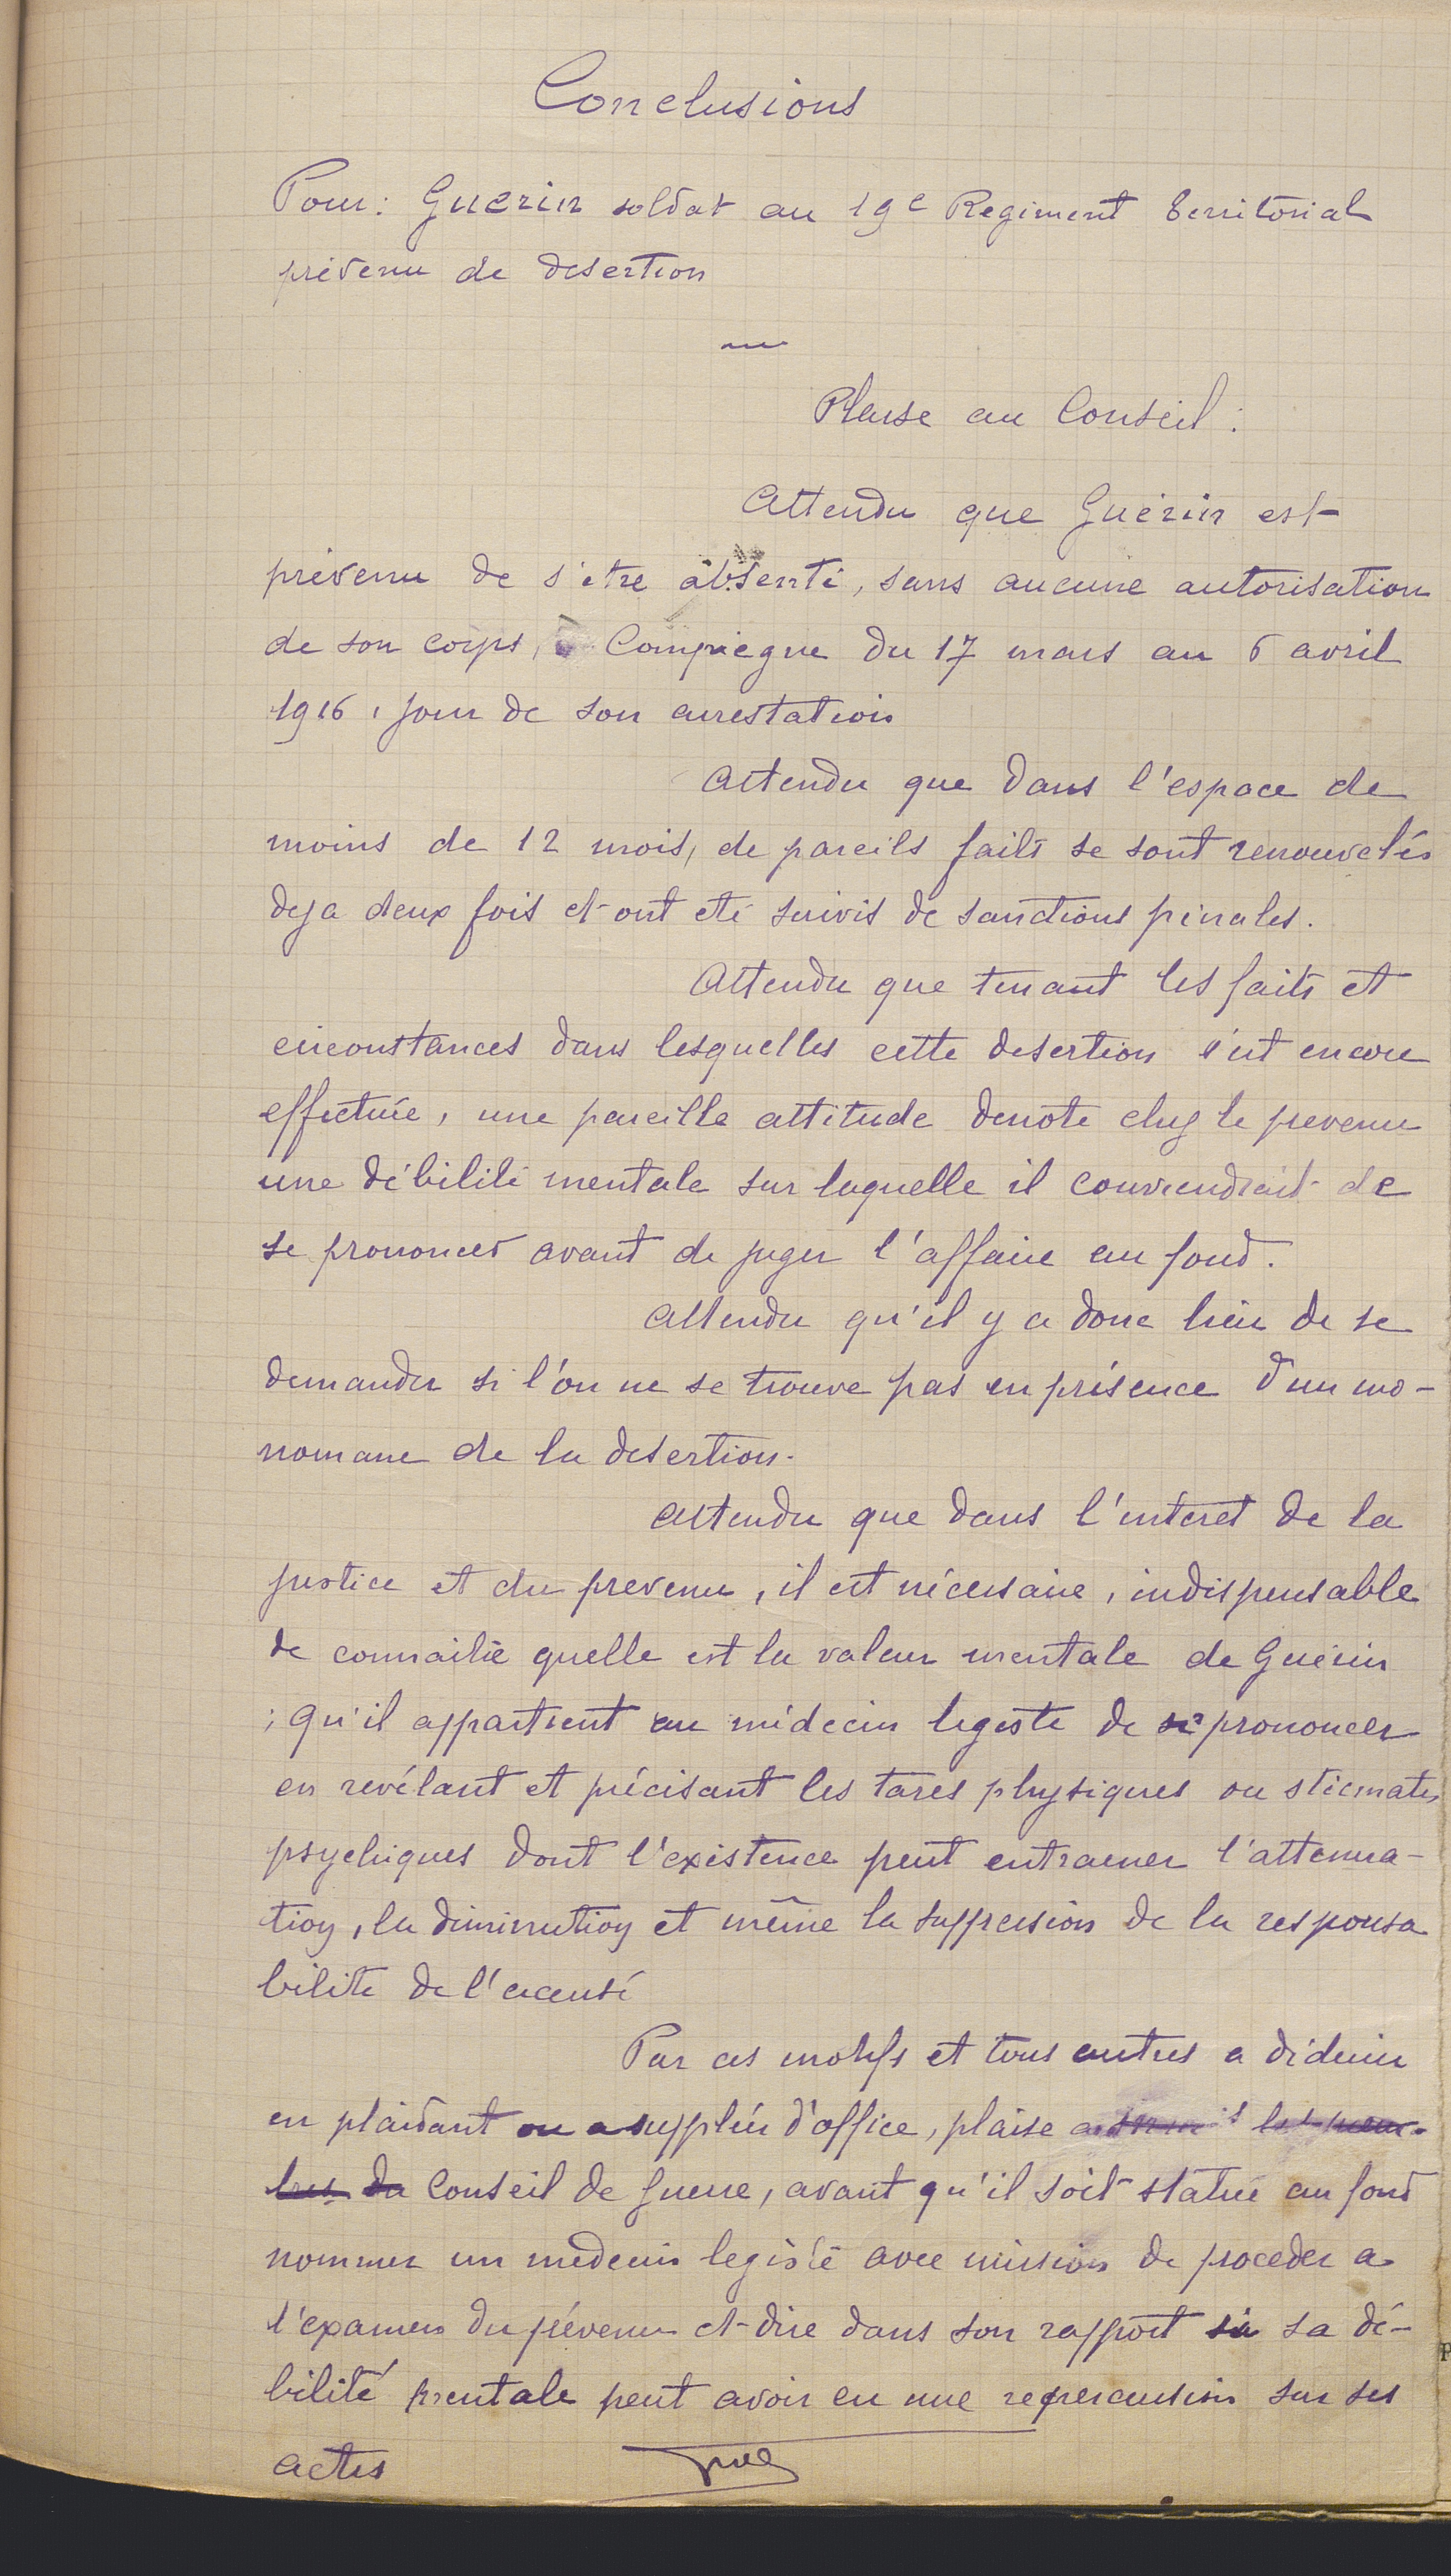 Conclusions
Pour: Guerin soldat au 19e Regiment territorial
prévenu de desertion
Plaise au Conseil :
Attendu que Guérin est
prévenu de s'etre absenté, sans aucune autorisation
de son corps, Compiegne du 17 mars au 6 avril
1916, jour de son arrestation
Attendu que dans l'espace de
moins de 12 mois, de pareils faits se sont renouvelés
deja deux fois et ont eté suivis de sanctions pénales.
Attendu que tenant les faits et
circonstances dans lesquelles cette desertion s'est encore
effectuée, une pareille attitude denote chez le prevenu
une débilité mentale sur laquelle il conviendrait de
se prononcer avant de juger l'affaire au fond.
Attendu qu'il y a donc lieu de se
demander si l'on ne se trouve pas en présence d'un mo-
nomane de la desertion.
Attendu que dans l'interet de la
justice et du prevenu, il est nécessaire, indispensable
de connaitre quelle est la valeur mentale de Guérin
; qu'il appartient au médecin legiste de se prononcer
en revélant et précisant les tares physiques ou sticmates
psychiques dont l'existence peut entrainer l'attenua-
tion, la diminution et même la suppression de la responsa
bilite de l'accusé
Par ces motifs et tous autres a déduire
en plaidant ou a suppléer d'office, plaise a les mem-
bres du Conseil de guerre, avant qu'il soit statué au fond
nommer un medecin legiste avec mission de proceder a
l'examen du prévenu et dire dans son rapport si sa dé-
bilité mentale peut avoir eu une repercussion sur ses
actes